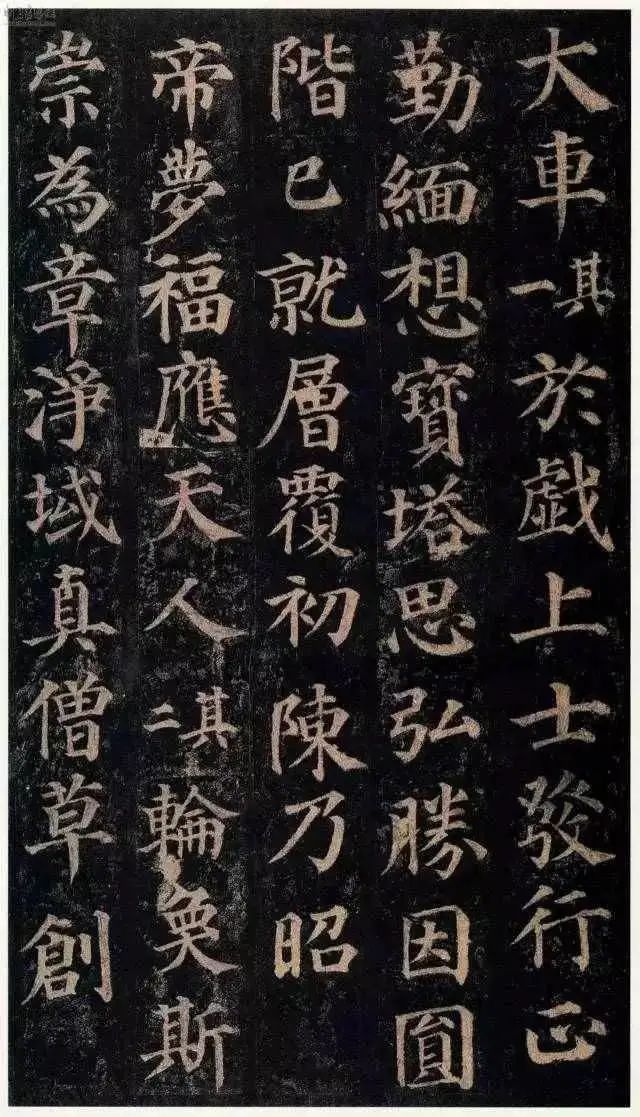 大車其一於戲上士發行正
勤緬想寶塔思弘勝因圓
階已就層覆初陳乃昭
帝夢福應天人其二輪奐斯
崇為章淨域真僧草創